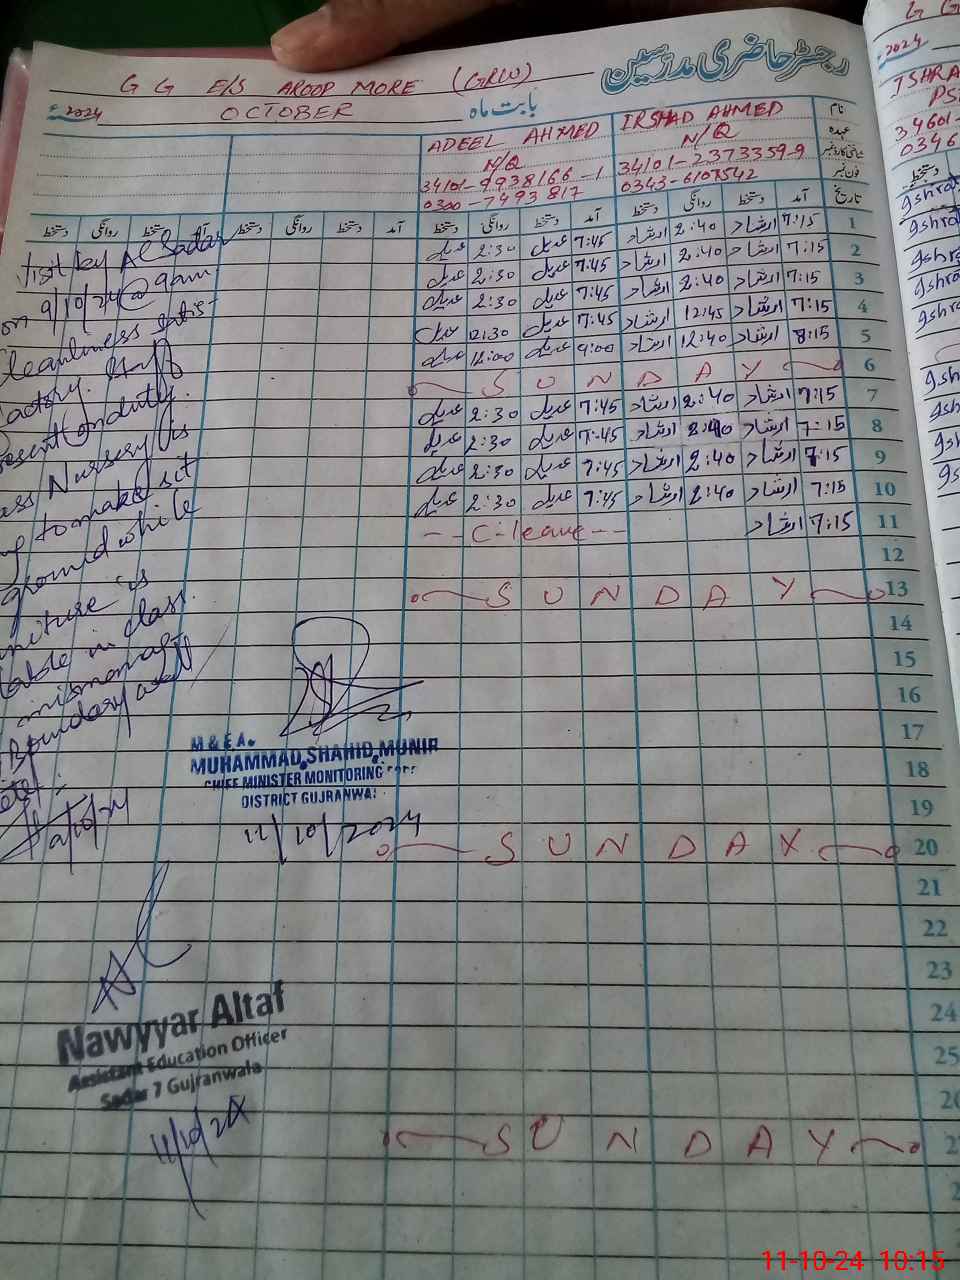 رجسٹر حاضری مدرسین
G G E/S AROOP MORE (GRW)
بابت ماہ OCTOBER 2024ء
نام IRSHAD AHMED ADEEL AHMED
عہدہ N/Q N/Q
شناختی کارڈ نمبر 34101-2373359-9 34101-9938166-1
فون نمبر 0343-6107542 0300-7493817
تاریخ آمد دستخط روانگی دستخط آمد دستخط روانگی دستخط آمد دستخط روانگی دستخط آمد دستخط روانگی دستخط
1 7:15 ارشاد 2:40 ارشاد 7:45 عدیل 2:30 عدیل
2 7:15 ارشاد 2:40 ارشاد 7:45 عدیل 2:30 عدیل
3 7:15 ارشاد 2:40 ارشاد 7:45 عدیل 2:30 عدیل
4 7:15 ارشاد 12:45 ارشاد 7:45 عدیل 12:30 عدیل
5 8:15 ارشاد 12:40 ارشاد 9:00 عدیل 12:00 عدیل
6 SUNDAY
7 7:15 ارشاد 2:40 ارشاد 7:45 عدیل 2:30 عدیل
8 7:15 ارشاد 2:40 ارشاد 7:45 عدیل 2:30 عدیل
9 7:15 ارشاد 2:40 ارشاد 7:45 عدیل 2:30 عدیل
10 7:15 ارشاد 2:40 ارشاد 7:45 عدیل 2:30 عدیل
11 7:15 ارشاد --C-leave--
12
13 SUNDAY
14
15
16
17
18
19
20 SUNDAY
21
22
23
24
25
SUNDAY
Visit by A Sadar
on 9/10/24 @ 9am
Cleanliness satis-
factory. Staff
present on duty.
class Nursery is
to make sit
ground while
furniture is
in class
Boundary wall
M & E.A.
MUHAMMAD SHAHID MUNIR
CHIEF MINISTER MONITORING
DISTRICT GUJRANWAL
11/10/2024
Nawyyar Altaf
Assistant Education Officer
Sadar 7 Gujranwala
11/10/24
2024
34601-
0346
11-10-24 10:15